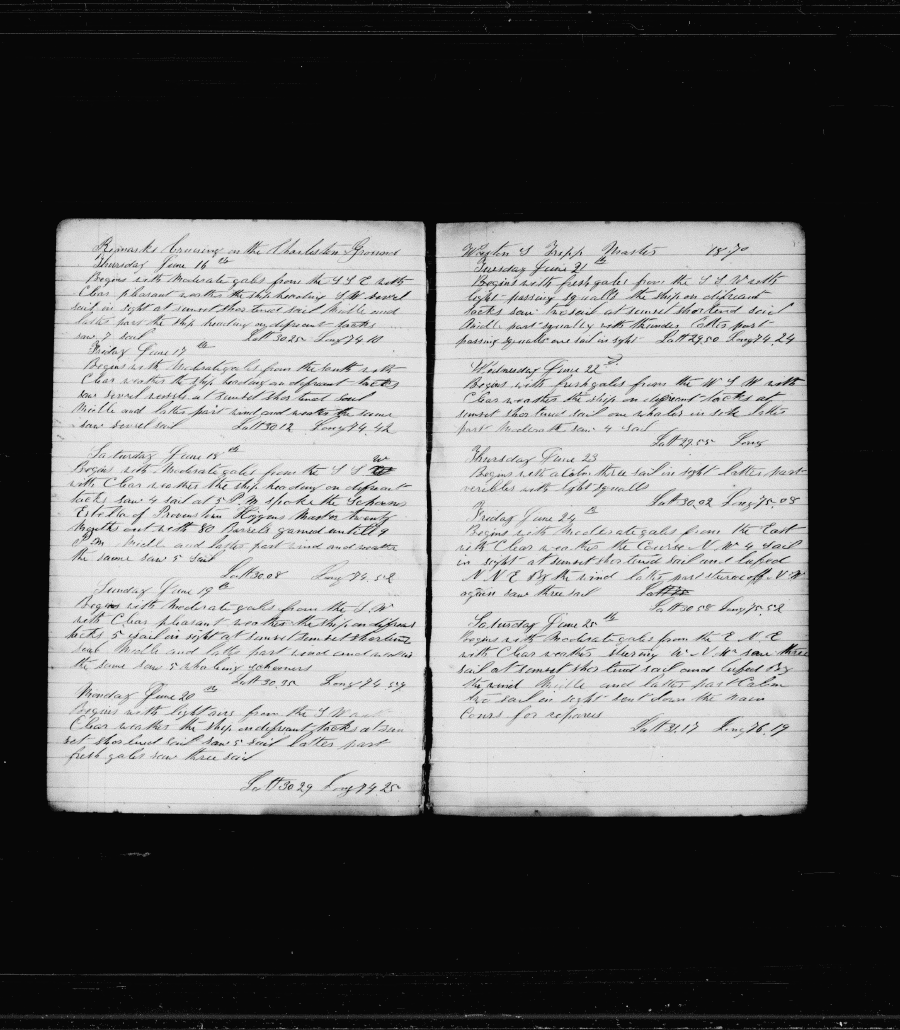 Remarks Cruising on the Charleston Ground
Thursday June 16th
Begins with Moderate gales from the S S E with
Clear pleasant weather the ship heading S W sevrel
sail in sight at sunset shortend sail Midle and
latter part the ship heading on difreant tacks
saw 7 sail Latt 30.25 Long 74.10
Friday June 17th
Begins with Moderate gales from the South with
Clear weather the ship heading on difreant tacks
saw sevrel vessels at sunset shortend sail
Midle and latter part wind and weather the same
saw sevrel sail Latt 30.12 Long 74.42
Saturday June 18th
Begins with Moderate gales from the S S W
with Clear weather the ship heading on difreant
tacks saw 4 sail at 5 P.M spoke the Schooner
Estella of Provinstein Higgens Master twenty
Months out with 80 Barrels gamed untill 9
P.M Midle and latter part wind and weather
the same saw 5 sail
Latt 30.08 Long 74.52
Sunday June 19th
Begins with Moderate gales from the S.W
with Clear pleasant weather the ship on difrean
tacks 5 sail in sight at sunset sunset shortend
sail Midle and latte part wind and weather
the same saw 5 whaling schoners
Latt 30.35 Long 74.54
Monday June 20th
Begins with light airs from the S W
Clear weather the ship on difreant tacks at sun
set shortend sail saw 5 sail latter part
fresh gales saw three sail
Latt 30.29 Long 74.25
S Tripp Master 1870
Tuesday June 21th
Begins with fresh gales from the S S W with
light passing squalls the ship on difreant
tacks saw sail at sunset shortend sail
Midle part squally with thunder latter part
passing squalls one sail in sight Latt 29.50 Long 74.24
Wednesday June 22nd
Begins with fresh gales from the W S W with
Clear weather the ship on difreant tacks at
sunset shortend sail one whaler in sight latter
part Moderate saw 4 sail
Latt 29.55 Long
Thursday June 23
Begins with a Calm three sail in sight latter part
veribles with light squalls
Latt 30.02 Long 75.03
Friday June 24th
Begins with Moderate gales from the East
with Clear weather the Course N. W 4 sail
in sight at sunset shortend sail and lufed
N N E By the wind latter part steared off N W
again saw three sail
Latt 30.58 Long 75.52
Saturday June 25th
Begins with Moderate gales from the E N E
with Clear weather stearing W N W saw three
sail at sunset shortend sail and lufed By
the wind Midle and latter part Calm
two sail in sight sent down the Main
Cours for repares
Latt 31.17 Long 76.19